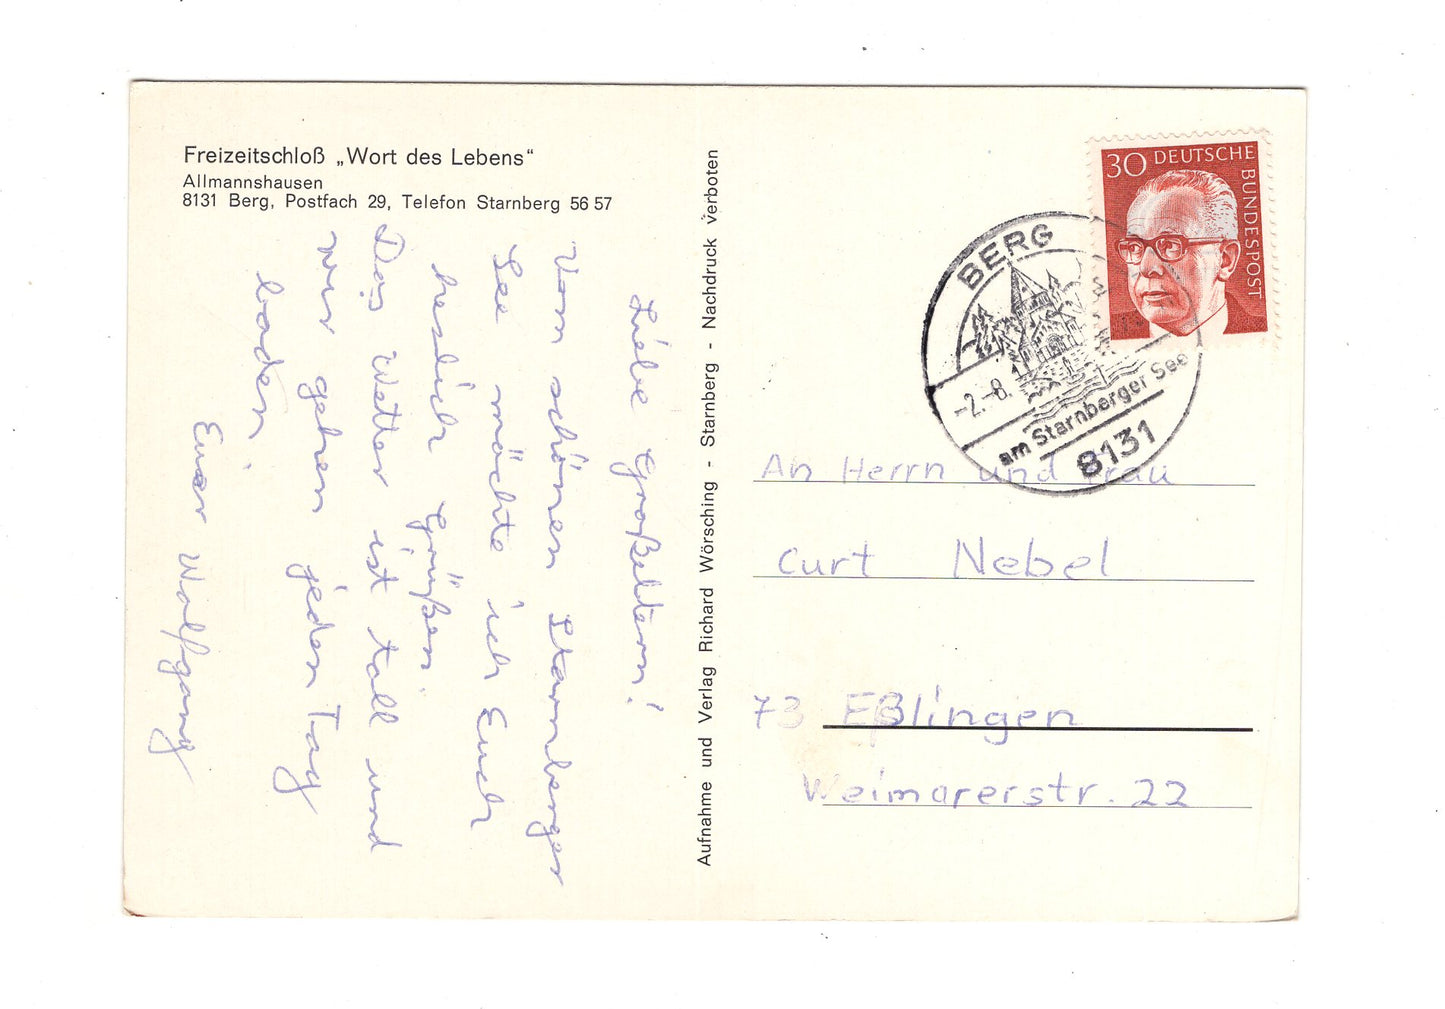 Freizeitschloß „Wort des Lebens“
Allmannshausen
8131 Berg, Postfach 29, Telefon Starnberg 56 57
Liebe Großeltern!
Vom schönen Starnberger
See möchte ich Euch
heslich Grüßen
Das Wetter ist tall und
wir gehen jeden Tag
baden
Euer Wolfgang
Aufnahme und Verlag Richard Wörsching - Starnberg - Nachdruck verboten
30 DEUTSCHE
BUNDESPOST
BERG
-2.-8.
am Starnberger See
8131
An Herrn und Frau
Curt Nebel
73 Eßlingen
Weimarerstr. 22